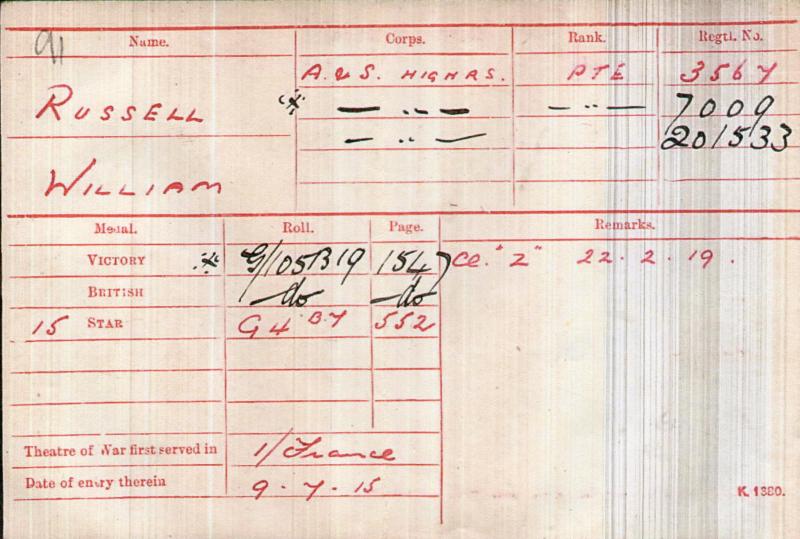 91
Name. Corps. Rank. Regtl. No.
A. & S. HIGHRS. PTE 3567
RUSSELL * — " — — " — 7009
— " — 201533
WILLIAM
Medal. Roll. Page. Remarks.
VICTORY * G/105B19 154 Cl. "Z" 22. 2. 19.
BRITISH do do
15 STAR G4 B7 552
Theatre of War first served in 1/ France
Date of entry therein 9. 7. 15
K. 1380.